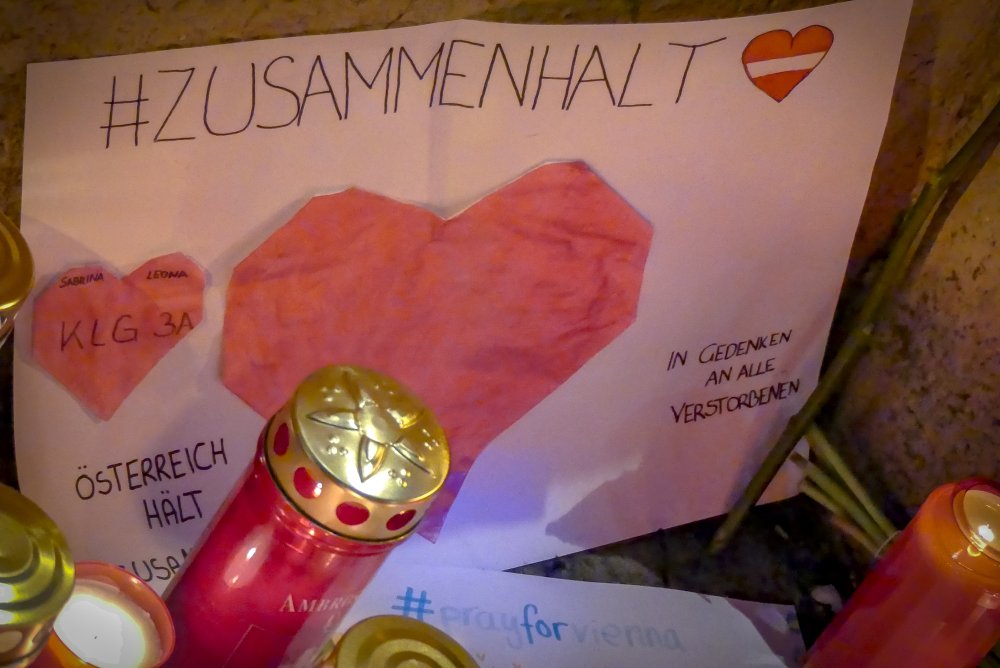 #ZUSAMMENHALT
SABRINA LEONA
KLG 3A
IN GEDENKEN
AN ALLE
VERSTORBENEN
ÖSTERREICH
HÄLT
#prayforvienna